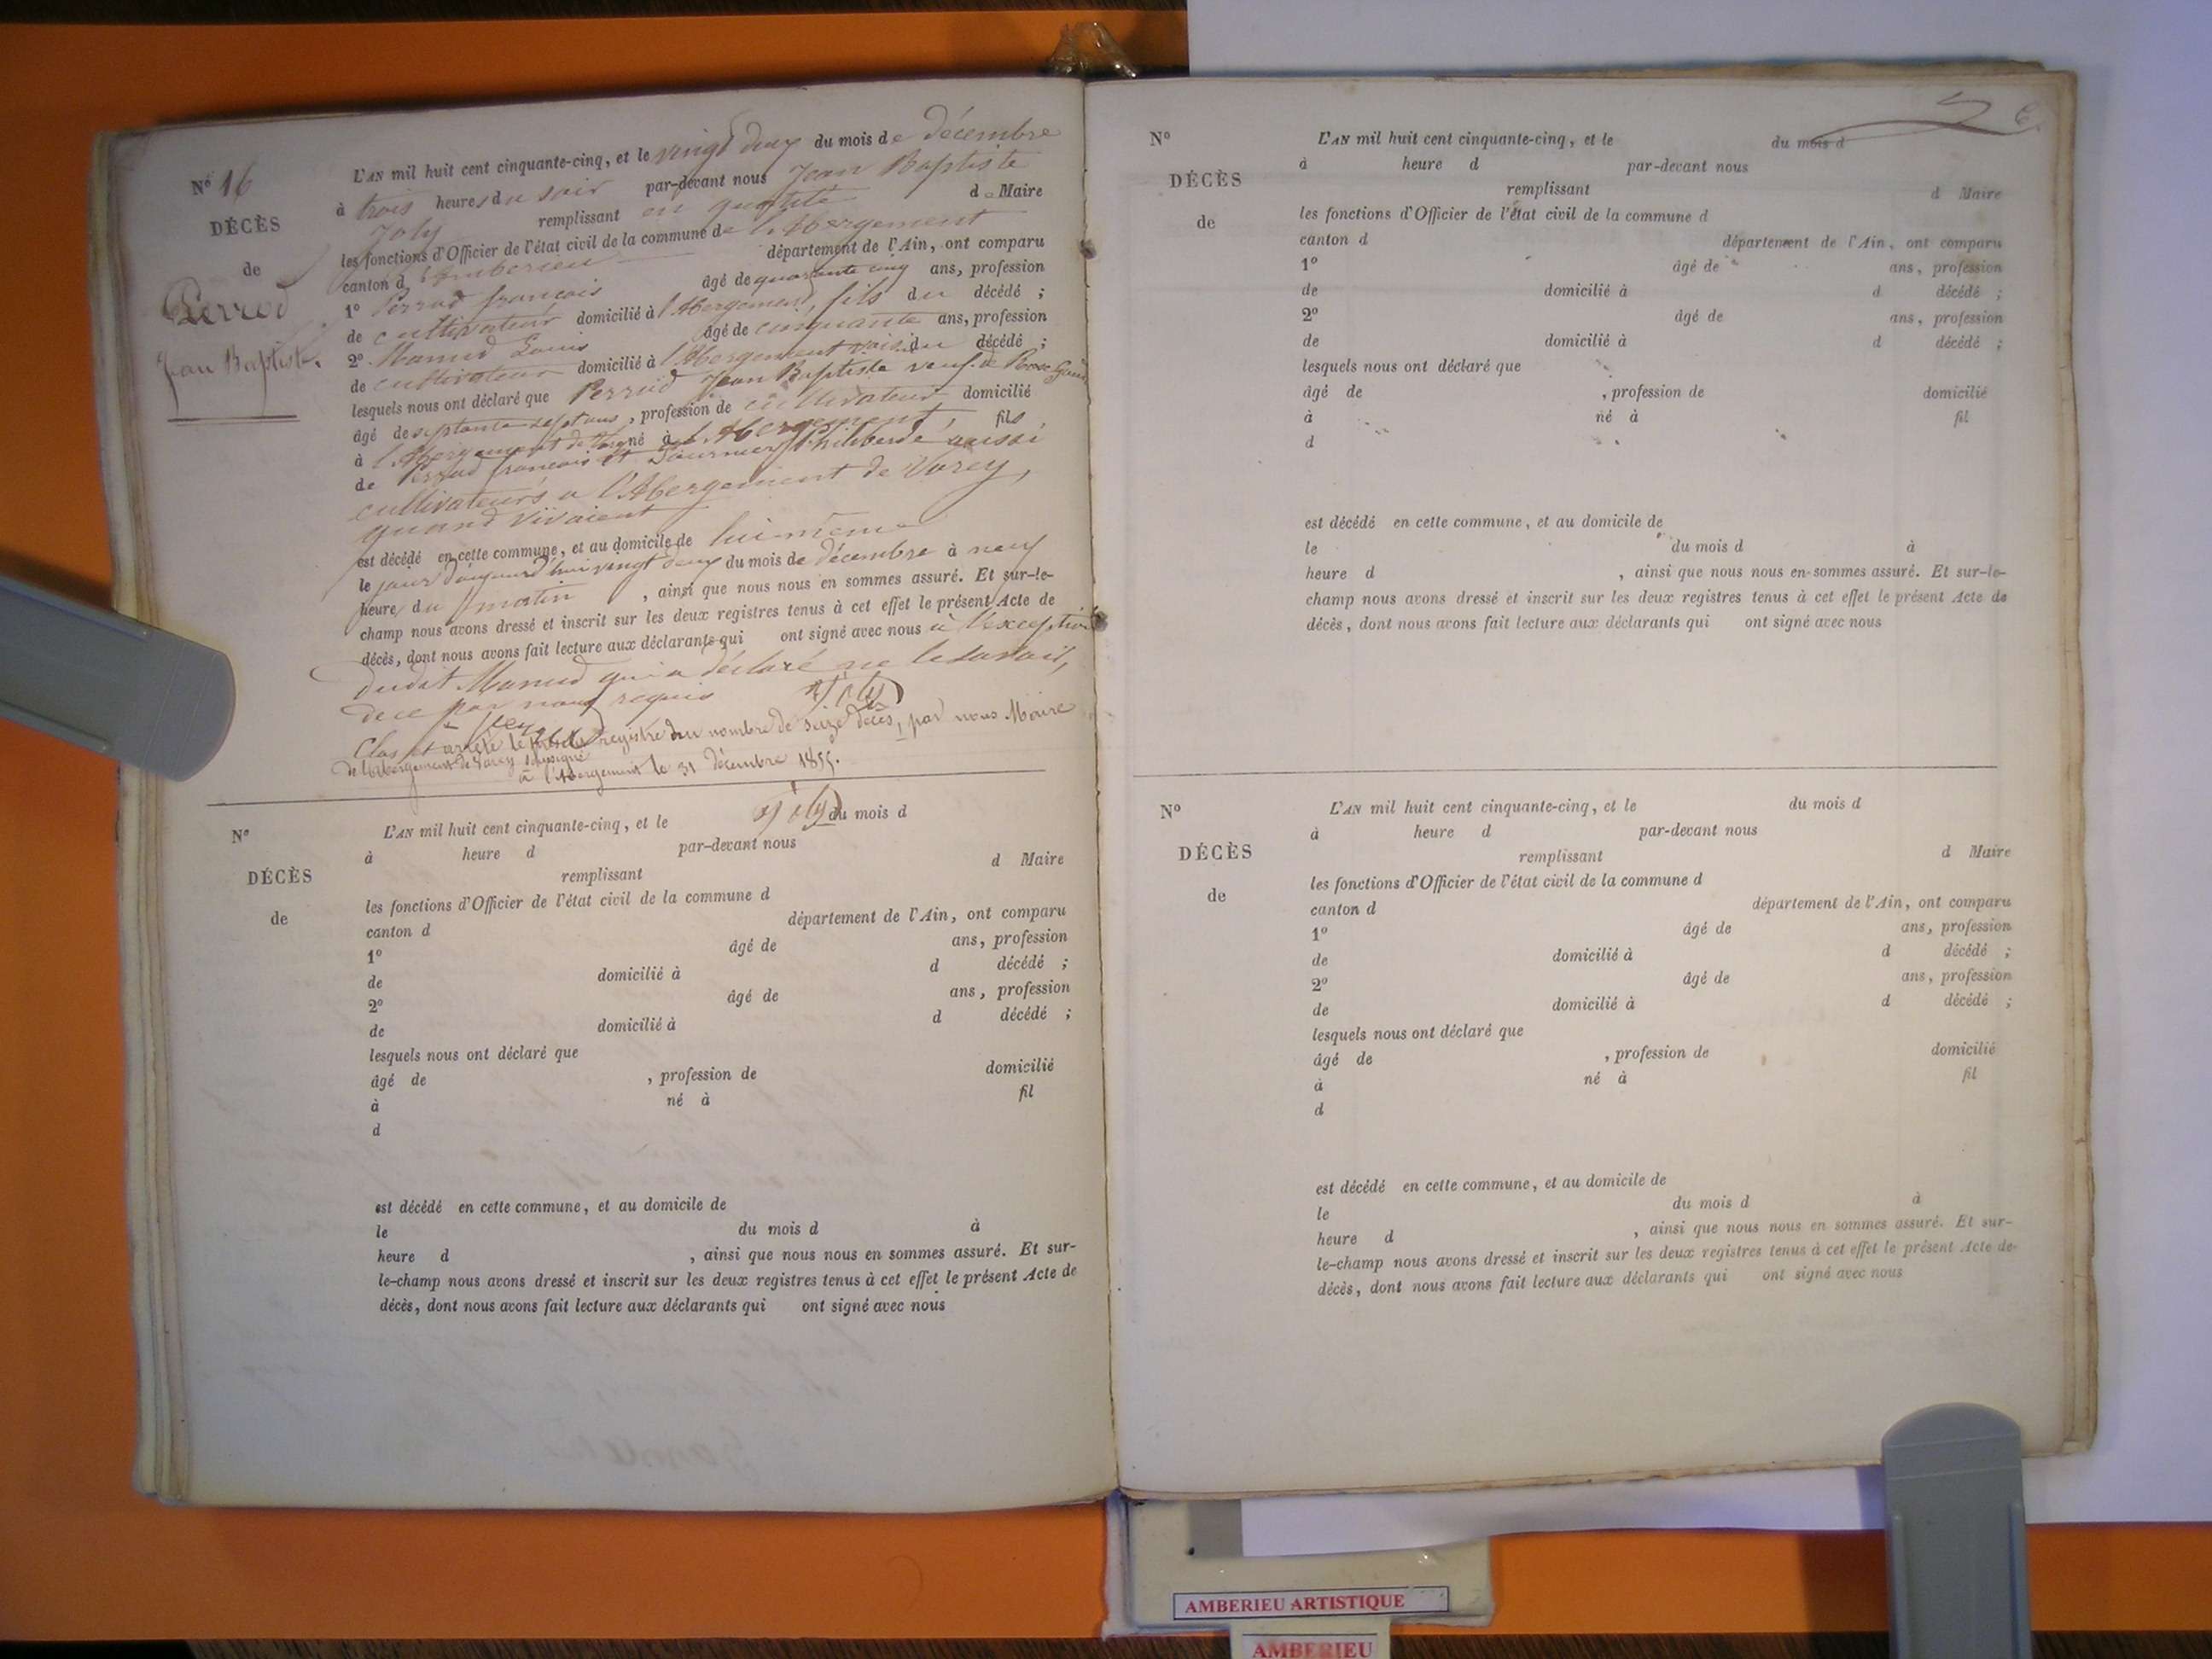 N° 16
DÉCÈS
de
Perrod
Jean Baptiste.
L'AN mil huit cent cinquante-cinq, et le vingt deux du mois de décembre
à trois heures du soir par-devant nous Jean Baptiste
Joly remplissant en qualité de Maire
les fonctions d'Officier de l'état civil de la commune de l'Abergement
canton d'Amberieu département de l'Ain, ont comparu
1° Perrod françois âgé de quarante cinq ans, profession
de cultivateur domicilié à l'Abergement, fils du décédé ;
2° Manud Louis âgé de cinquante ans, profession
de cultivateur domicilié à l'Abergement voisin du décédé ;
lesquels nous ont déclaré que Perrod Jean Baptiste veuf de
âgé de septante sept ans, profession de cultivateur domicilié
à l'Abergement de Varey né à l'Abergement, fils
de Perrod françois et Philiberde aussi
cultivateurs a l'Abergement de Varey,
quand vivaient
est décédé en cette commune, et au domicile de lui même
le jour d'aujourd'hui vingt deux du mois de décembre à neuf
heure du matin , ainsi que nous nous en sommes assuré. Et sur-le-
champ nous avons dressé et inscrit sur les deux registres tenus à cet effet le présent Acte de
décès, dont nous avons fait lecture aux déclarants qui ont signé avec nous à l'exception
dudit Manud qui a déclaré ne le savoir,
de ce par nous requis Joly
Clos et arrêté le présent registre au nombre de seize décès, par nous Maire
de l'Abergement de Varey soussigné
à l'Abergement le 31 décembre 1855.
Joly
N°
DÉCÈS
de
L'AN mil huit cent cinquante-cinq, et le du mois d
à heure d par-devant nous
remplissant d Maire
les fonctions d'Officier de l'état civil de la commune d
canton d département de l'Ain, ont comparu
1° âgé de ans, profession
de domicilié à d décédé ;
2° âgé de ans, profession
de domicilié à d décédé ;
lesquels nous ont déclaré que
âgé de , profession de domicilié
à né à fil
d
est décédé en cette commune, et au domicile de
le du mois d à
heure d , ainsi que nous nous en sommes assuré. Et sur-
le-champ nous avons dressé et inscrit sur les deux registres tenus à cet effet le présent Acte de
décès, dont nous avons fait lecture aux déclarants qui ont signé avec nous
N°
DÉCÈS
de
L'AN mil huit cent cinquante-cinq, et le du mois d
à heure d par-devant nous
remplissant d Maire
les fonctions d'Officier de l'état civil de la commune d
canton d département de l'Ain, ont comparu
1° âgé de ans, profession
de domicilié à d décédé ;
2° âgé de ans, profession
de domicilié à d décédé ;
lesquels nous ont déclaré que
âgé de , profession de domicilié
à né à fil
d
est décédé en cette commune, et au domicile de
le du mois d à
heure d , ainsi que nous nous en sommes assuré. Et sur-le-
champ nous avons dressé et inscrit sur les deux registres tenus à cet effet le présent Acte de
décès, dont nous avons fait lecture aux déclarants qui ont signé avec nous
N°
DÉCÈS
de
L'AN mil huit cent cinquante-cinq, et le du mois d
à heure d par-devant nous
remplissant d Maire
les fonctions d'Officier de l'état civil de la commune d
canton d département de l'Ain, ont comparu
1° âgé de ans, profession
de domicilié à d décédé ;
2° âgé de ans, profession
de domicilié à d décédé ;
lesquels nous ont déclaré que
âgé de , profession de domicilié
à né à fil
d
est décédé en cette commune, et au domicile de
le du mois d à
heure d , ainsi que nous nous en sommes assuré. Et sur-
le-champ nous avons dressé et inscrit sur les deux registres tenus à cet effet le présent Acte de
décès, dont nous avons fait lecture aux déclarants qui ont signé avec nous
AMBERIEU ARTISTIQUE
AMBERIEU